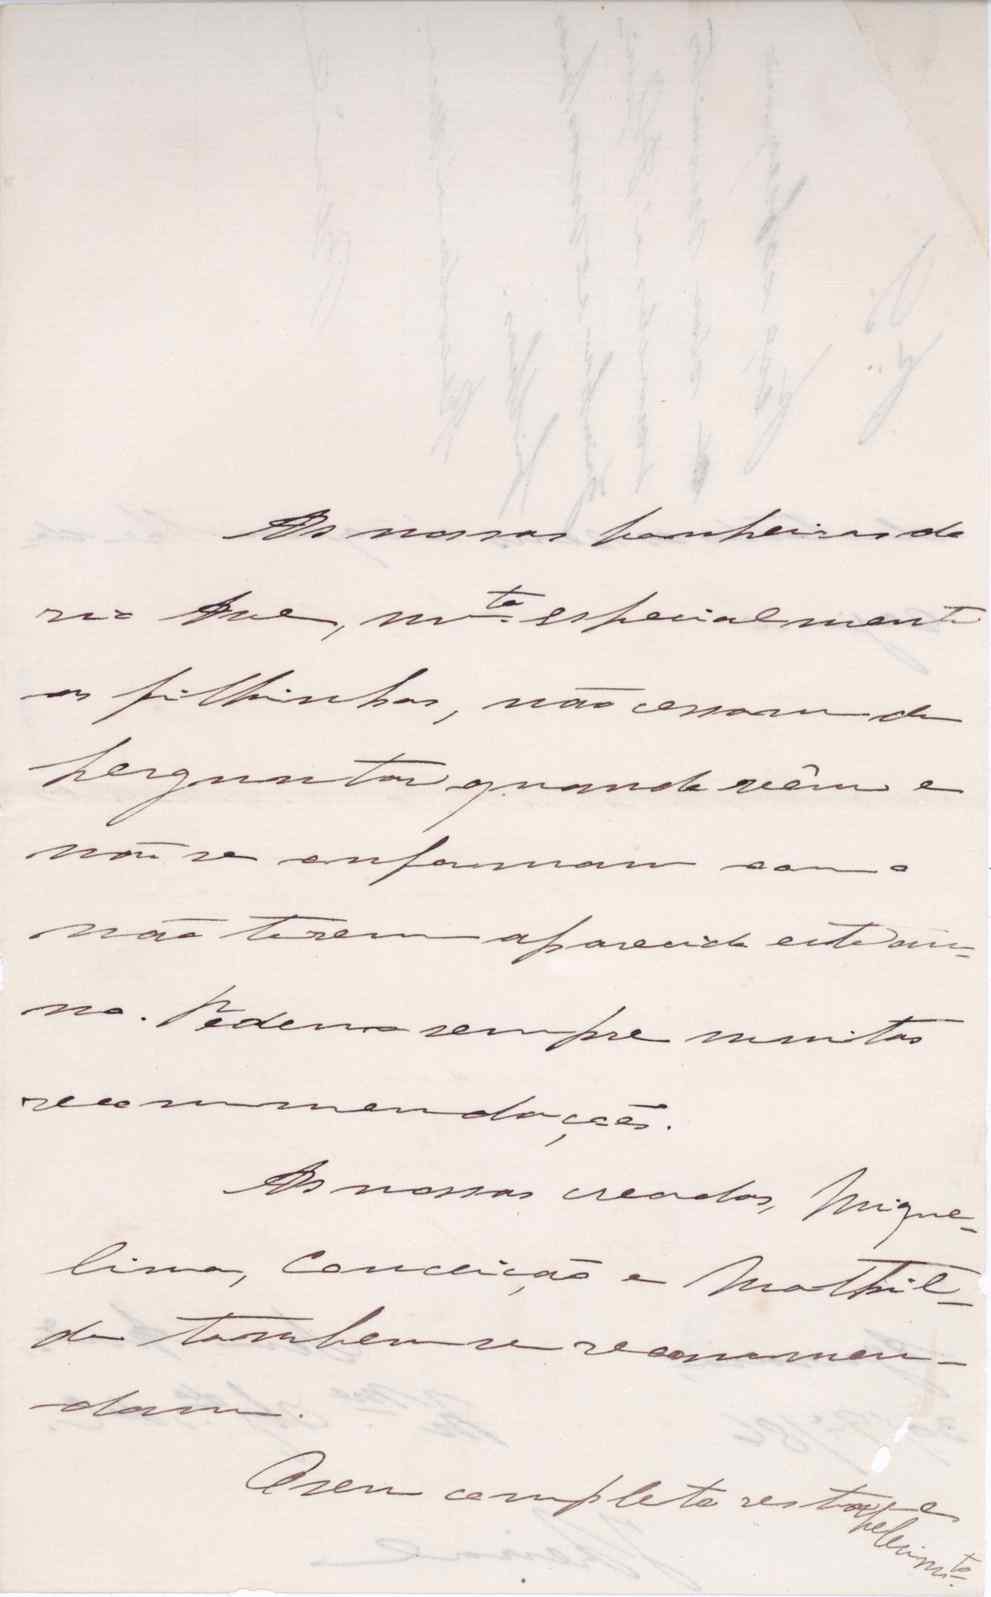 As nossas banheiras do
rio Ave, m.ta especialmente
as filhinhas, não cessam de
perguntar quando vêm e
não se conformam com o
não terem aparecido este an-
no. Pedem sempre muitas
recommendações.
As nossas creadas, Migue-
lina, Conceição e Mathil-
de tambem se recommen-
dam.
O seu completo restabe
lecim.to